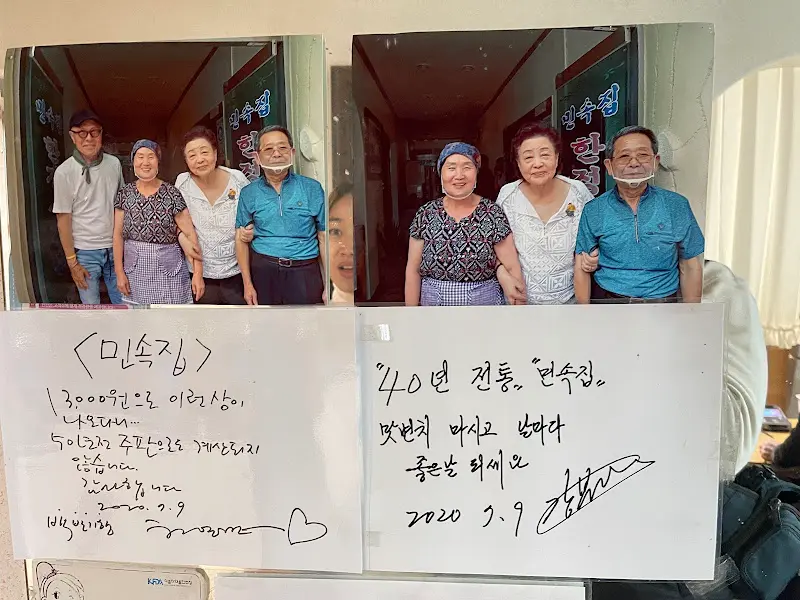 민속집
한정
민속집
한정
<민속집>
13,000원으로 이런상이
나오다니...
주판으로도 계산되지
않습니다.
감사합니다
2020. 7. 9
백반기행
"40년 전통" "민속집"
맛변치 마시고 날마다
좋은날 되세요
2020 7. 9